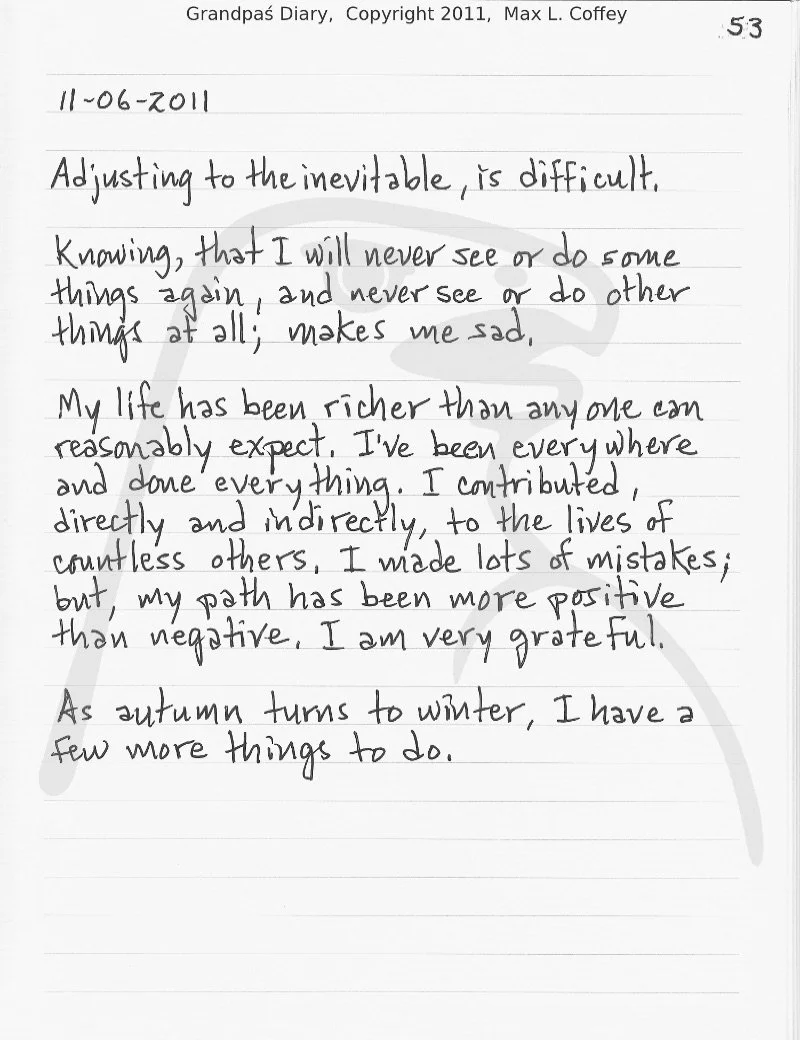 Grandpaś Diary, Copyright 2011, Max L. Coffey
53
11-06-2011
Adjusting to the inevitable, is difficult.
Knowing, that I will never see or do some
things again, and never see or do other
things at all; makes me sad.
My life has been richer than any one can
reasonably expect. I've been everywhere
and done everything. I contributed,
directly and indirectly, to the lives of
countless others. I made lots of mistakes;
but, my path has been more positive
than negative. I am very grateful.
As autumn turns to winter, I have a
few more things to do.